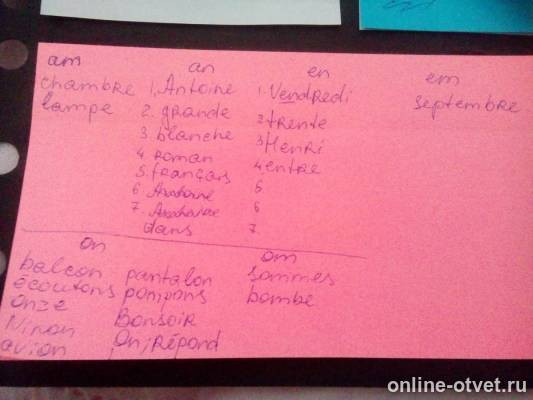 am an en em
chambre 1. Antoine 1. Vendredi septembre
lampe 2. grande 2 trente
3. blanche 3 Henri
4 roman 4 entre
5. français 5
6 6
7. 7
dans
on om
balcon pantalon sommes
écoutons pompons bombe
onze Bonsoir
Ninon On, répond
avion
online-otvet.ru